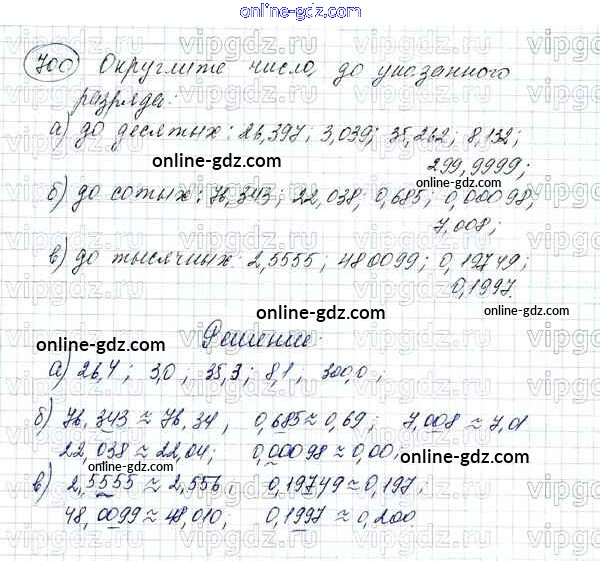 online-gdz.com
700 Округлите число, до указанного
разряда:
а) до десятых: 26,397; 3,039; 35,262; 8,132;
online-gdz.com
299,9999;
online-gdz.com
б) до сотых: 76,343; 22,038, 0,685; 0,00098;
online-gdz.com
7,008;
в) до тысячных: 2,5555; 480099; 0,19749;
0,1997.
online-gdz.com
Решение:
online-gdz.com
online-gdz.com
а) 26,4; 3,0, 35,3; 8,1, 300,0;
online-gdz.com
б) 76,343 ≈ 76,34, 0,685 ≈ 0,69; 7,008 ≈ 7,01
22,038 ≈ 22,04; 0,00098 ≈ 0,00;
online-gdz.com
online-gdz.com
в) 2,5555 ≈ 2,556, 0,19749 ≈ 0,197;
48,0099 ≈ 48,010, 0,1997 ≈ 0,200
online-gdz.com